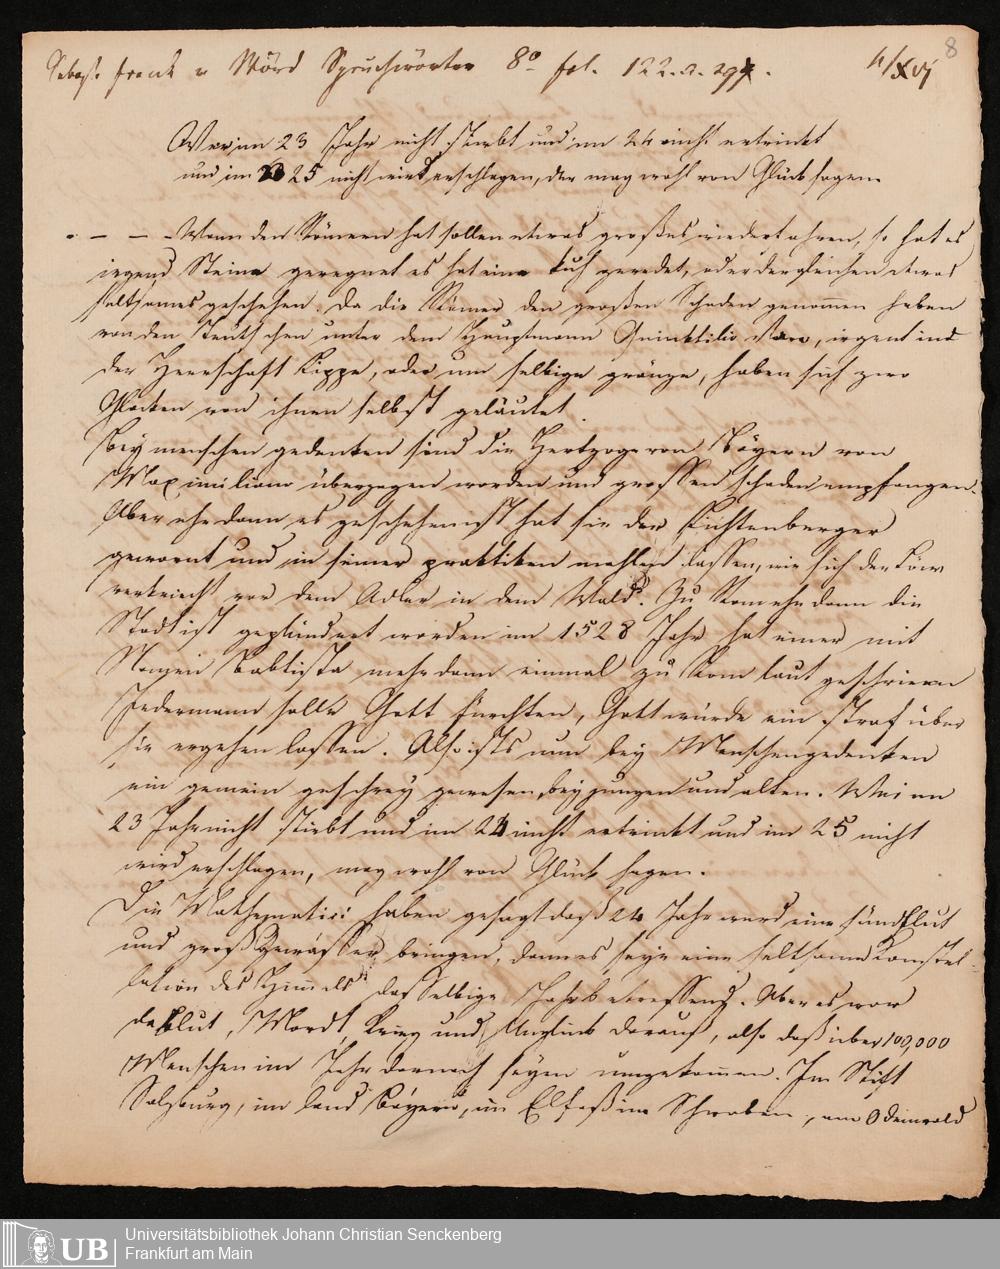 8
Sebast. Frank v Wörd Spruchwörter 8° fol. 122. a.
Wer im 23 Jahr nicht stirbt und im 24 nicht ertrinkt
und im 25 nicht wird erschlagen, der mag wohl von Glück sagen.
. — — - Wann den Römern hat sollen etwas großes wiederfahren, so hat es
irgend Steine geregnet es hat eine Kuh geredet, oder dergleichen etwas
seltsames geschehen. Da die Römer den großen Schaden genommen haben
von den Teutschen unter dem Hauptmann Quinktilio Varo, irgent ind
der Herrschaft Lippe, oder um selbige gränze, haben sich zwo
Glocken von ihnen selbst geläutet.
Bey menschen gedenken sind die Hertzoge von Bayern von
Maximiliano überzogen worden und grossen schaden empfangen.
Aber ehe dann es geschehen ist hat sie der Lichtenberger
gewarnt und in seiner praktiken mahlen lassen, wie sich der Löw
verkriecht vor dem Adler in dem Wald. Zu Rom ehe dann die
Stadt ist geplündert worden im 1528 Jahr hat einer mit
Namen Babtista mehr dann einmal zu Rom laut geschrieen
Jedermann solle Gott fürchten, Gott würde ein straf über
sie ergehen lassen. Also ists nun bey Menschengedenken
ein gemein geschrey gewesen, bey jungen und alten. Wer im
23 Jahr nicht stirbt und im 24 nicht ertrinkt und im 25 nicht
wird erschlagen, mag wohl von Glück sagen.
Die Mathematici haben gesagt daß 24 Jahr werd eine sündflut
und groß Gewässer bringen, dann es seye eine seltsame Konstel-
lation des Himmels dasselbige Jahr betreffend. Aber es war
da Blut, Mord, Krieg und Unglück darauf, also daß über 100,000
Menschen im Jahr darnach seyen umgekommen. Im Stift
Salzburg, im land Bayern, im Elsaß im Schwaben, am Odenwald
UB
Universitätsbibliothek Johann Christian Senckenberg
Frankfurt am Main